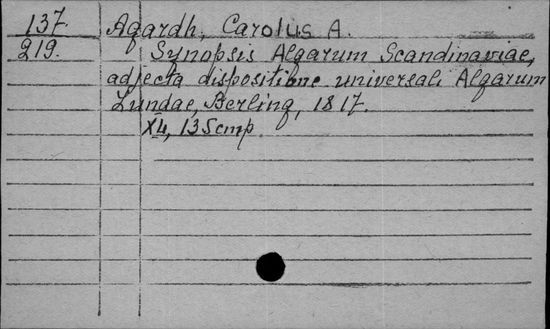 137. Agardh, Carolus A.
219. Synopsis Algarum Scandinaviae,
adjecta dispositione universali Algarum
Lundae, Berling, 1817.
X4, 135 стр